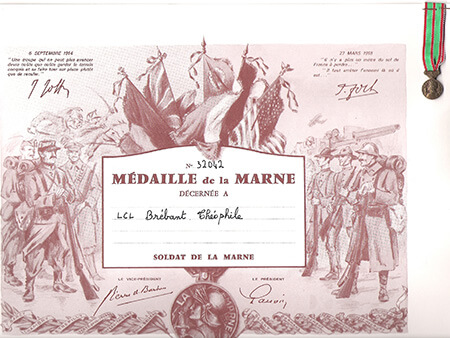 6 SEPTEMBRE 1914
"Une troupe qui ne peut plus avancer
devra coûte que coûte garder le terrain
conquis et se faire tuer sur place plutôt
que de reculer."
J. Joffre
27 MARS 1918
"Il n'y a plus un mètre du sol de
France à perdre...
Il faut arrêter l'ennemi là où il
est."
F. Foch
N° 32042
MÉDAILLE de la MARNE
DÉCERNÉE A
LCL Brébant Théophile
SOLDAT DE LA MARNE
LE VICE-PRÉSIDENT
LE PRÉSIDENT